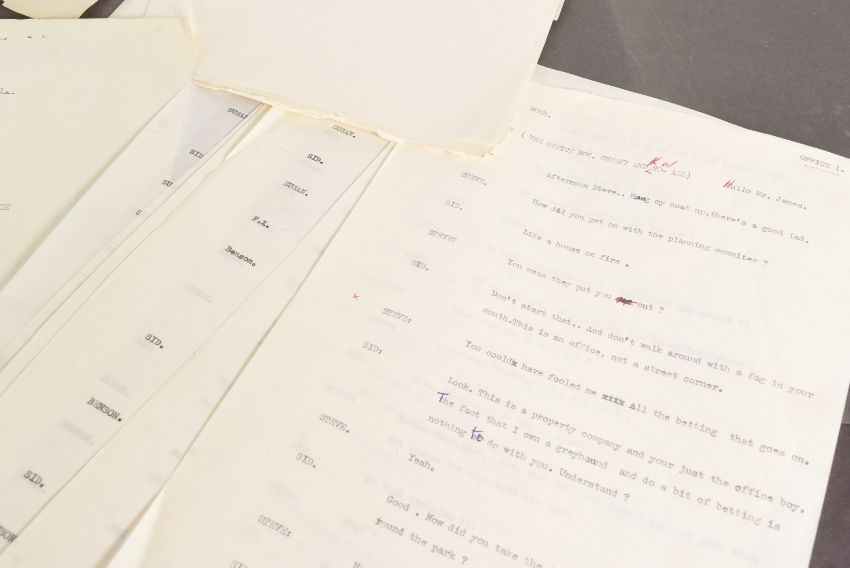 SUSAN.
SID.
BENSON.
SID.
SUSAN.
SID.
SUSAN.
F.X.
Benson.
SID.
BENSON.
SID.
OFFICE 1.
DOOR.
( THE OFFICE BOY. CHEEKY AND KNOW ALL)
Hullo Mr. James.
STEVE.
Afternoon Steve.. Hang my coat up, there's a good lad.
SID.
How did you get on with the planning commitee ?
STEVE?
Like a house on fire .
SID.
You mean they put you out ?
x
STEVE:
Don't start that.. And don't walk around with a fag in your
mouth.This is an office, not a street corner.
SID:
You could have fooled me All the betting that goes on.
Look. This is a property company and your just the office boy.
The fact that I own a greyhound and do a bit of betting is
nothing to do with you. Understand ?
STEVE.
Yeah.
SID.
Good . Now did you take the
round the park ?
STEVE:
SID: